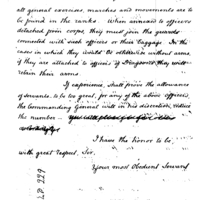 all general exercises, marches and movements are to
be found in the ranks. When servants to officers
detached from corps, they must join the guards
connected with such officers or their baggage. In the
case in which they would be otherwise without arms,
if they are attached to officers of Dragoons they will
retain their arms.
If experience, shall prove the allowance
of servants to be too great, for any of the above officers,
the Commanding General will in his discretion, reduce
the number
I have the honor to be,
with great respect, Sir,
Your most Obedient Servant